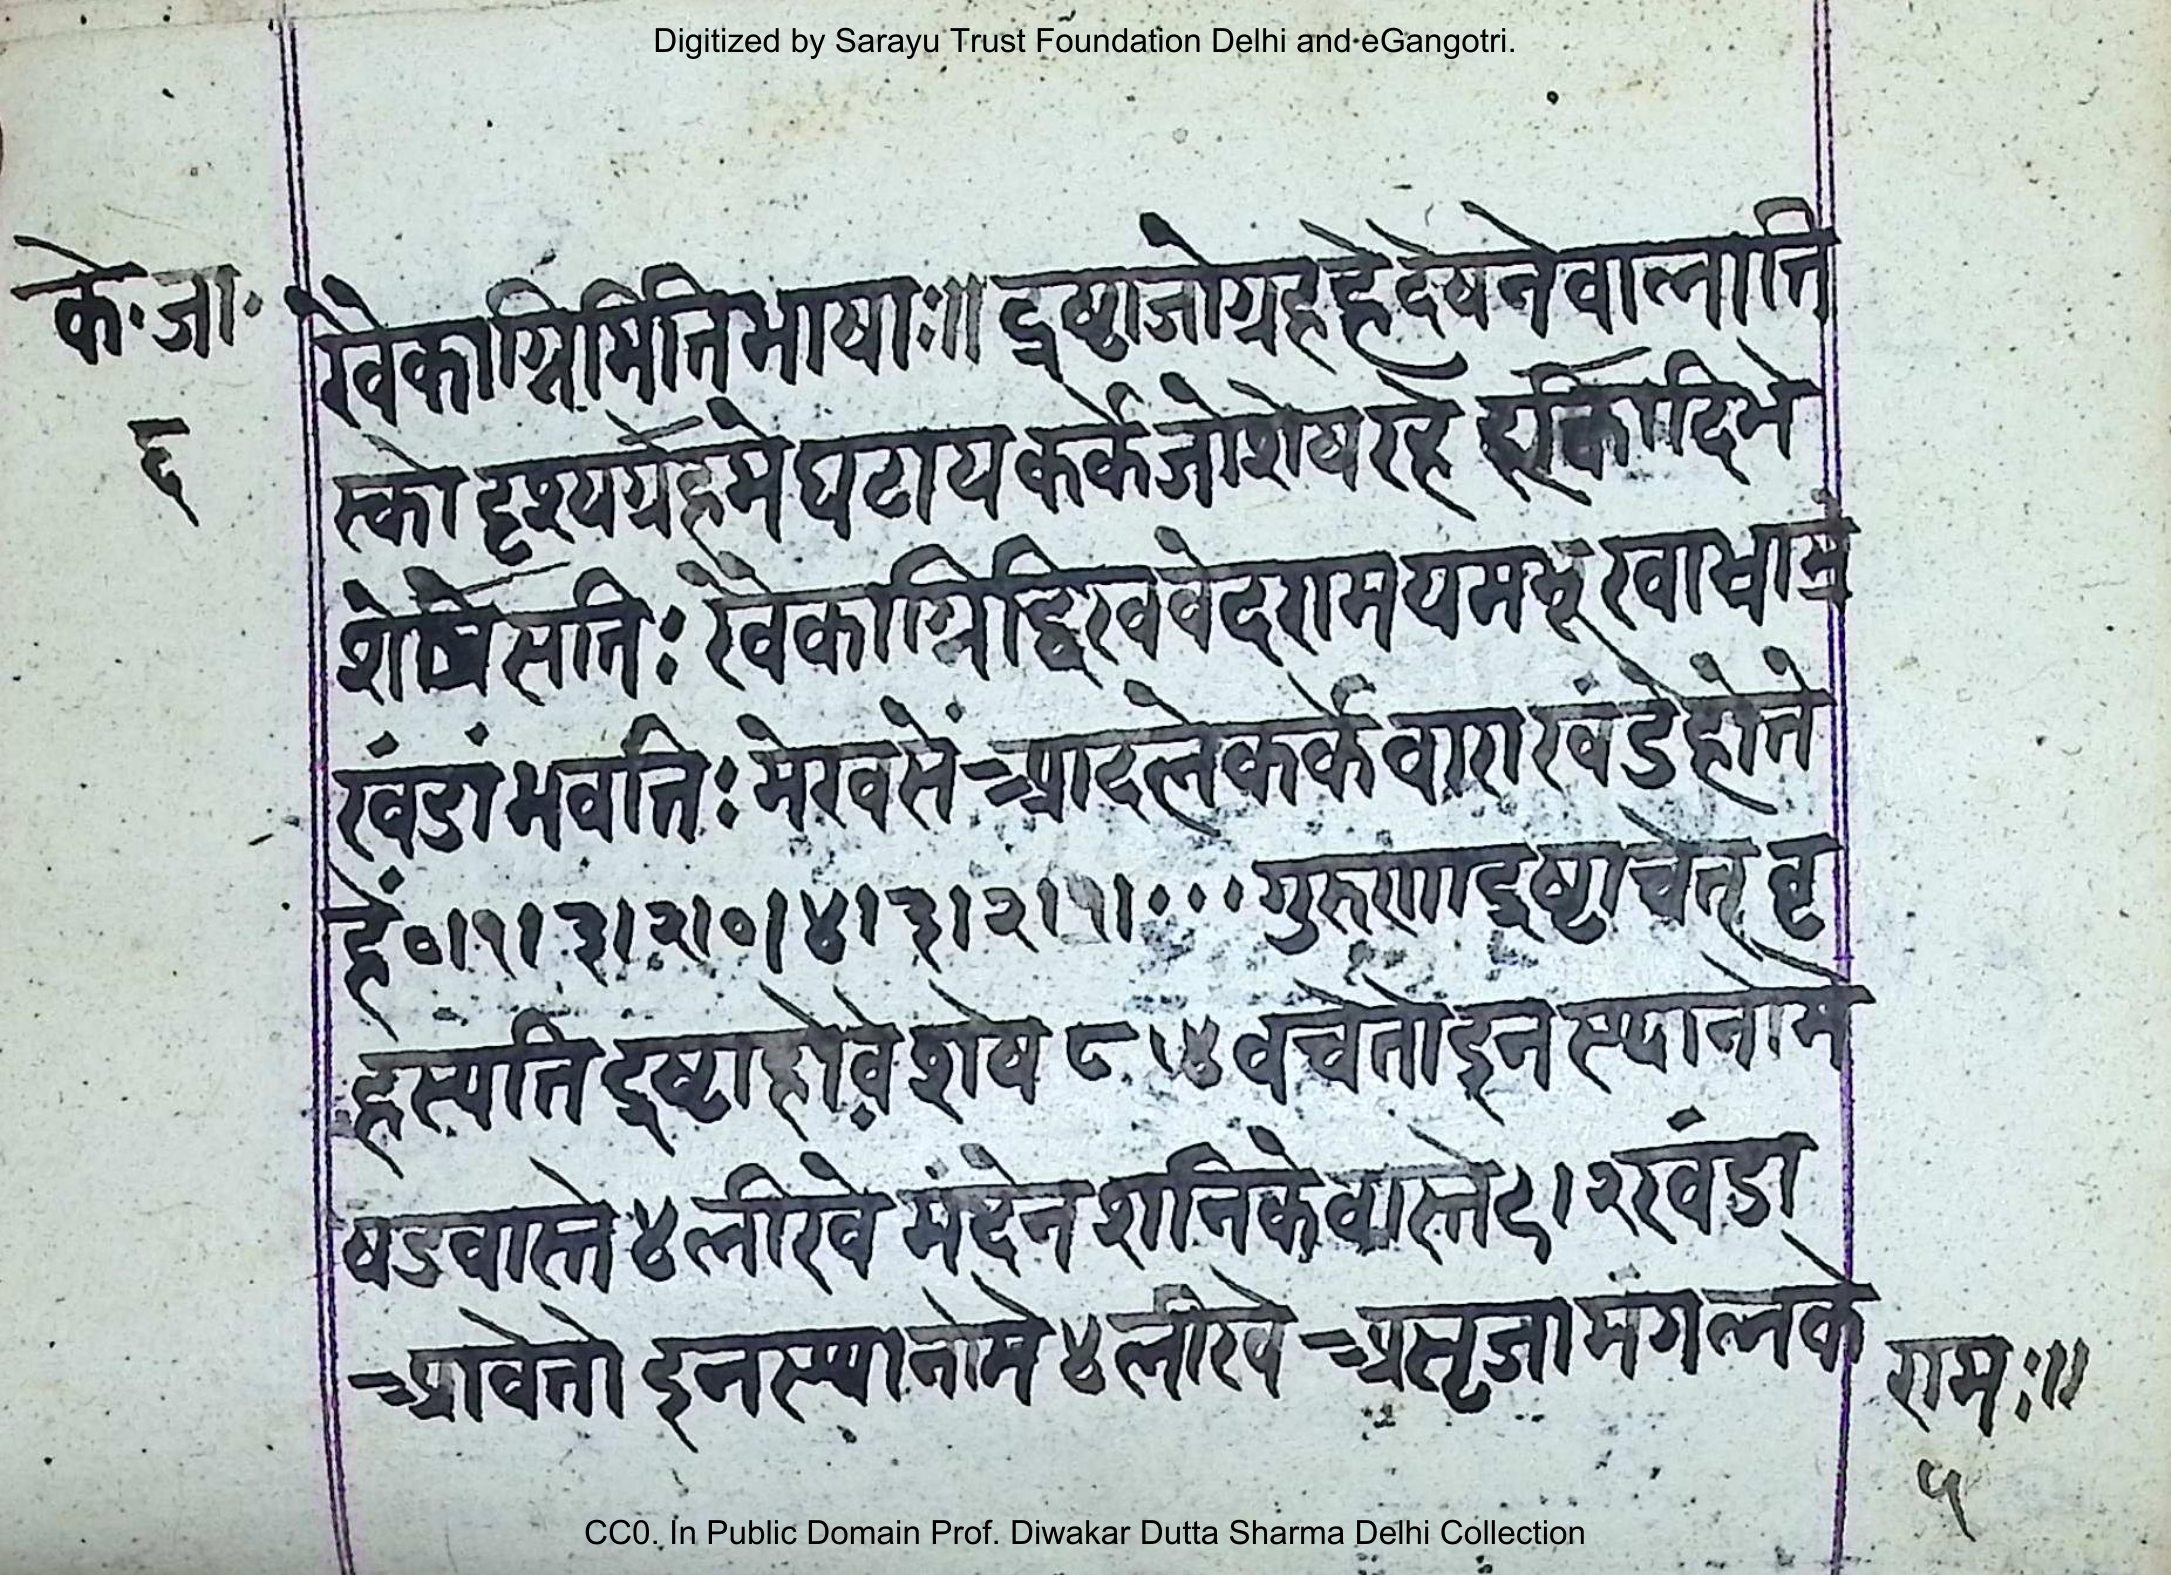 Digitized by Sarayu Trust Foundation Delhi and eGangotri.
के॰जा॰
६
खेकाग्निमितिभाषाः॥ द्रष्टाजोग्रहहेदेषनेवालाति
स्को दृश्यग्रहमे घटाय कर्के जोशेष रहे दिभे
शेषे सति: खेकाग्निद्विखवेदरामयमभूखा
खंडां भवति: मेखसें आदलेकर्के वारा खंडे होते
हें ०।१।३।२।०।४।३।२।१।... गुरुणाद्रष्टाचेत् वृ
हस्पति द्रष्टाहोवे शेष ८।४ वचेतो इन स्थानोमे
षडवास्ते ४ लीखे मंदेन शनिकेवास्ते ९।२ खंडा
आवेतो इनस्थानोमे ४ लीखे असृजा मंगलके
रामः॥
५
CC0. In Public Domain Prof. Diwakar Dutta Sharma Delhi Collection